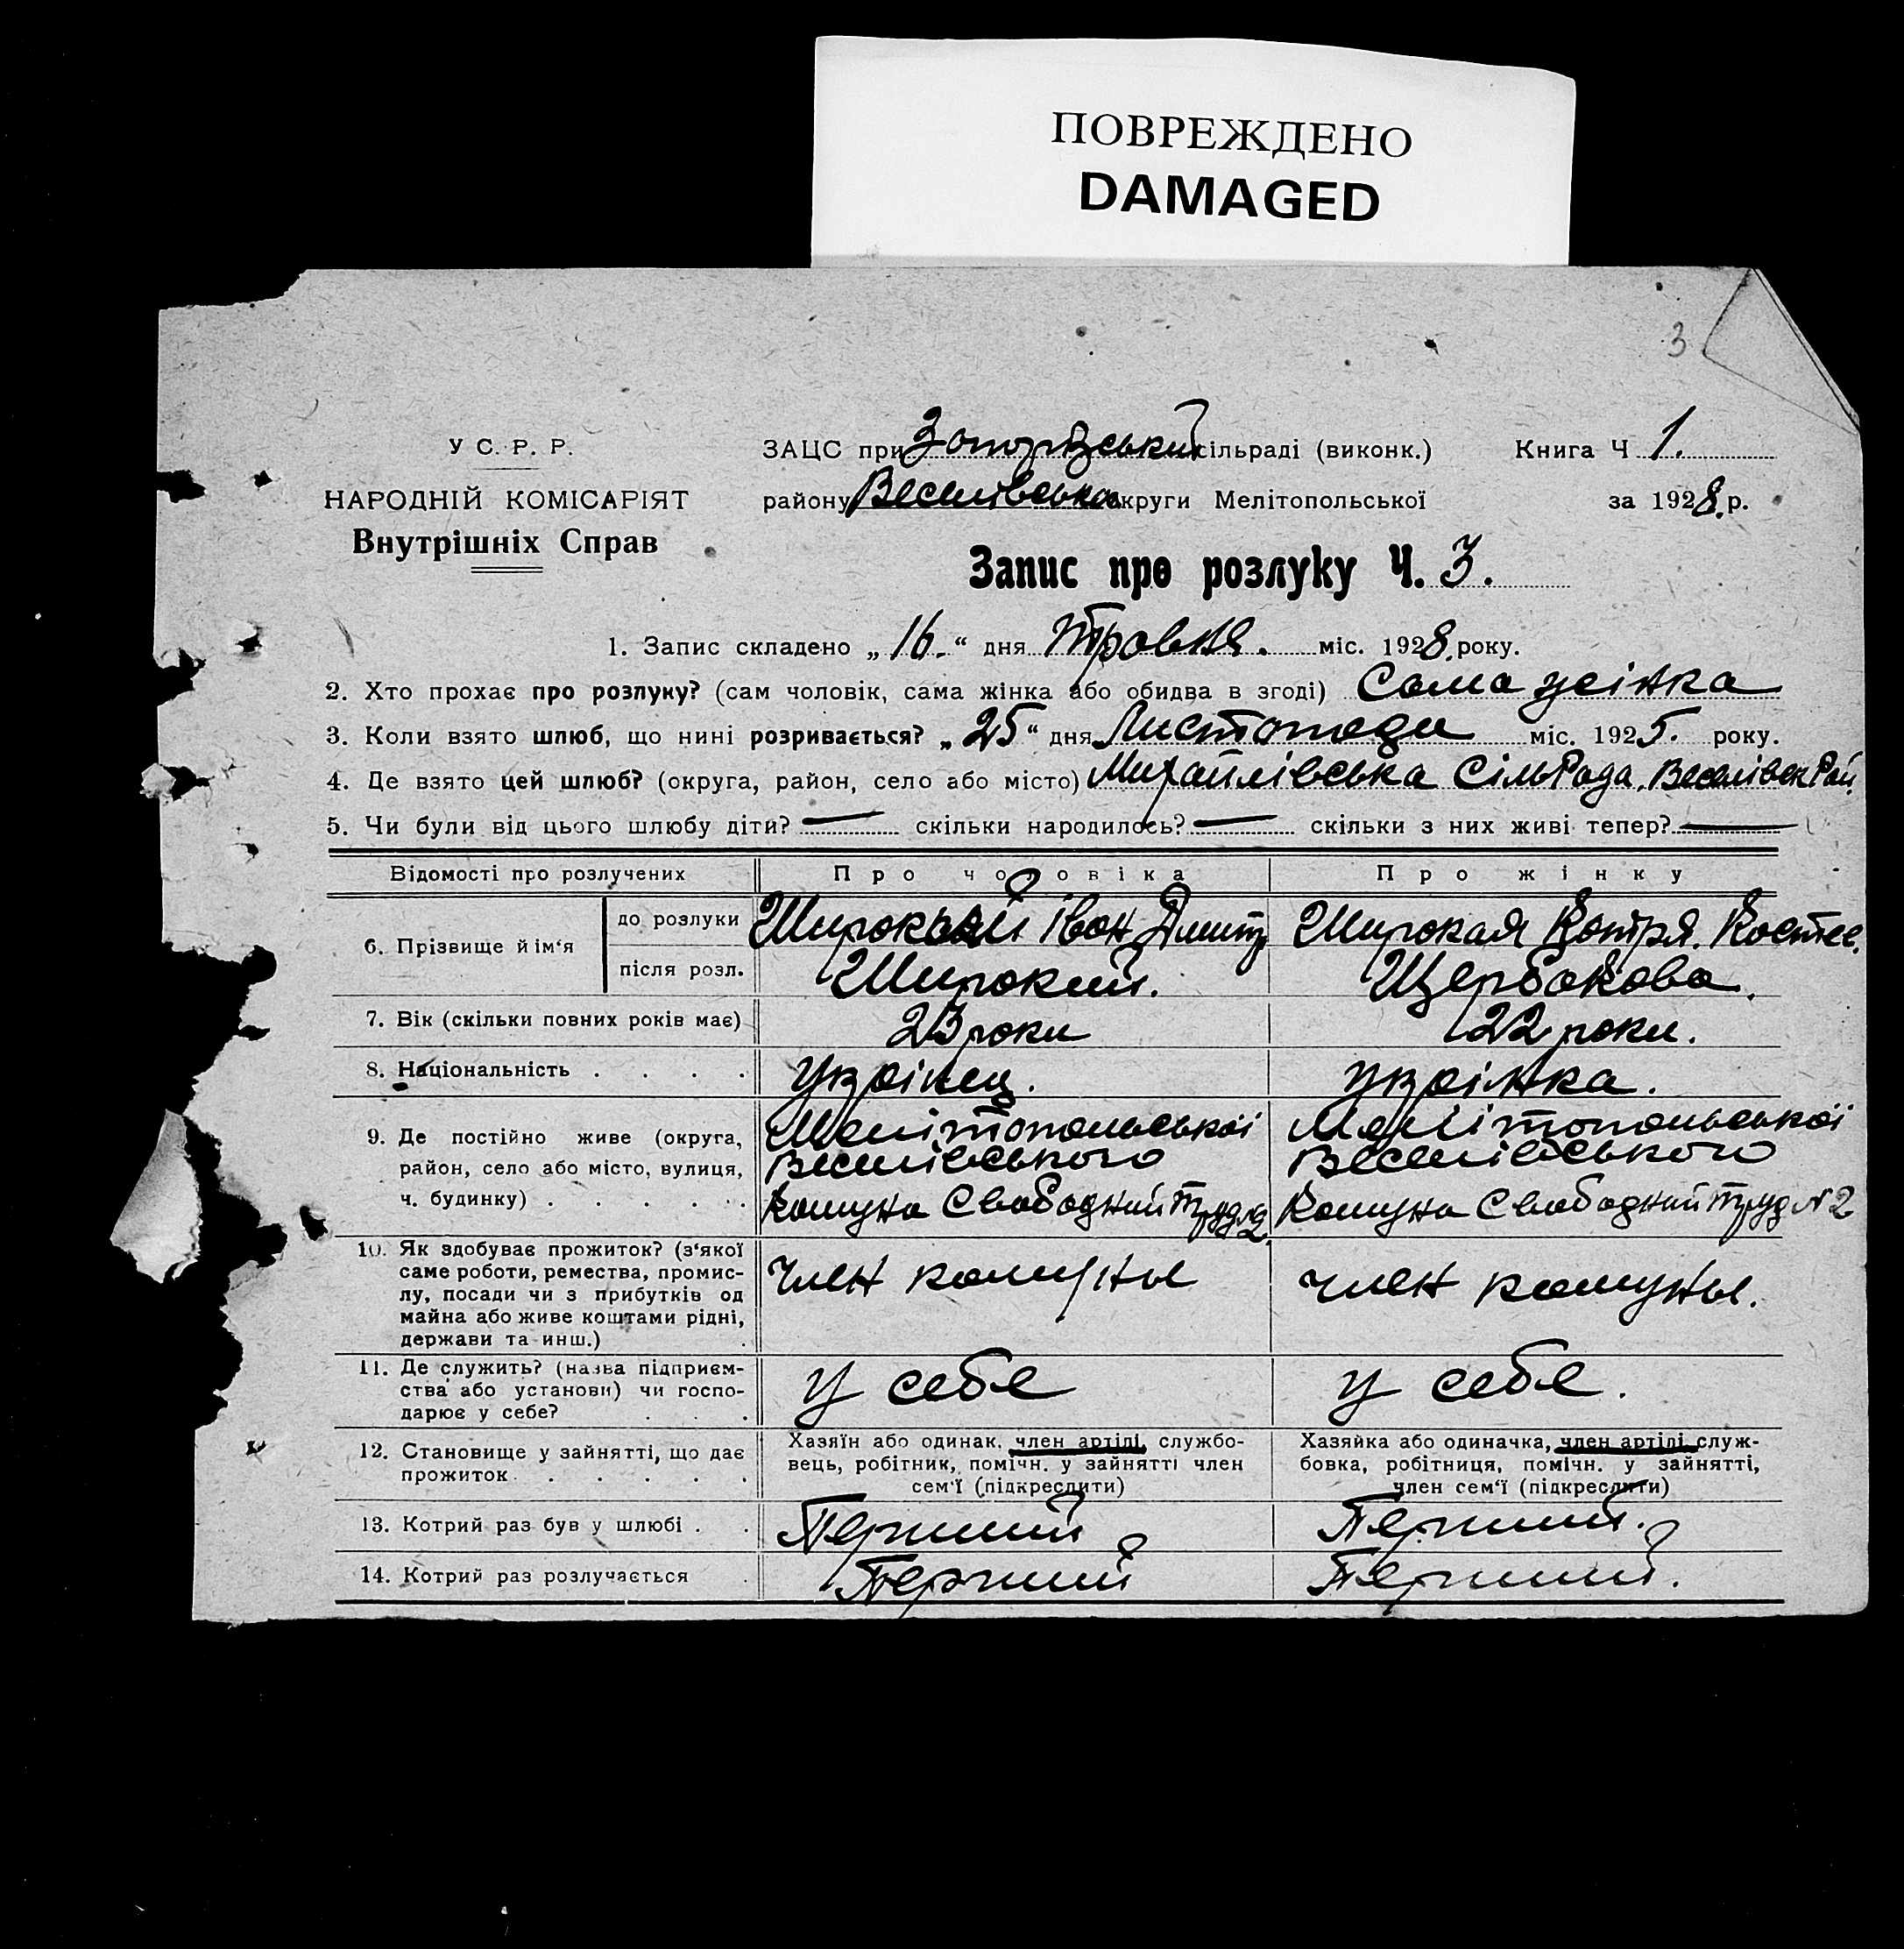 ПОВРЕЖДЕНО
DAMAGED
3
У С. Р. Р.
НАРОДНІЙ КОМІСАРІЯТ
Внутрішніх Справ
ЗАЦС при сільраді (виконк.)
району Веселівська округи Мелітопольської
Книга Ч 1.
за 1928 р.
Запис про розлуку Ч. 3.
1. Запис складено „16.“ дня Тровня. міс. 1928 року.
2. Хто прохає про розлуку? (сам чоловік, сама жінка або обидва в згоді) Сама жінка
3. Коли взято шлюб, що нині розривається? „25“ дня Листопада міс. 1925. року.
4. Де взято цей шлюб? (округа, район, село або місто) Михайлівська СільРада, Веселівск Рай.
5. Чи були від цього шлюбу діти? — скільки народилось? — скільки з них живі тепер? —
Відомості про розлучених Про чоловіка Про жінку
6. Прізвище й ім‘я
до розлуки Широкий Івон Дмитр Широкая Костее.
після розл. Широкий. Щербакова.
7. Вік (скільки повних років має) 23 роки 22 роки.
8. Національність . . . . Украінец. украінка.
9. Де постійно живе (округа,
район, село або місто, вулиця,
ч. будинку) . . . . .
Мелітопольськоі
Веселівського
Комуна Свободний труд №2
Мелітопольськоі
Веселівського
Комуна Свободний труд № 2
10. Як здобуває прожиток? (з‘якої
саме роботи, ремества, промис-
лу, посади чи з прибутків од
майна або живе коштами рідні,
держави та инш.) .
член комуны
член комуны.
11. Де служить? (назва підприєм-
ства або установи) чи госпо-
дарює у себе? . . .
у себе
у себе.
12. Становище у зайнятті, що дає
прожиток . . . . .
Хазяїн або одинак, член артілі, службо-
вець, робітник, помічн. у зайнятті член
сем‘ї (підкреслити)
Хазяйка або одиначка, член артілі, служ-
бовка, робітниця, помічн. у зайнятті,
член сем‘ї (підкреслити)
13. Котрий раз був у шлюбі . . Перший Перший.
14. Котрий раз розлучається . Перший Перший.